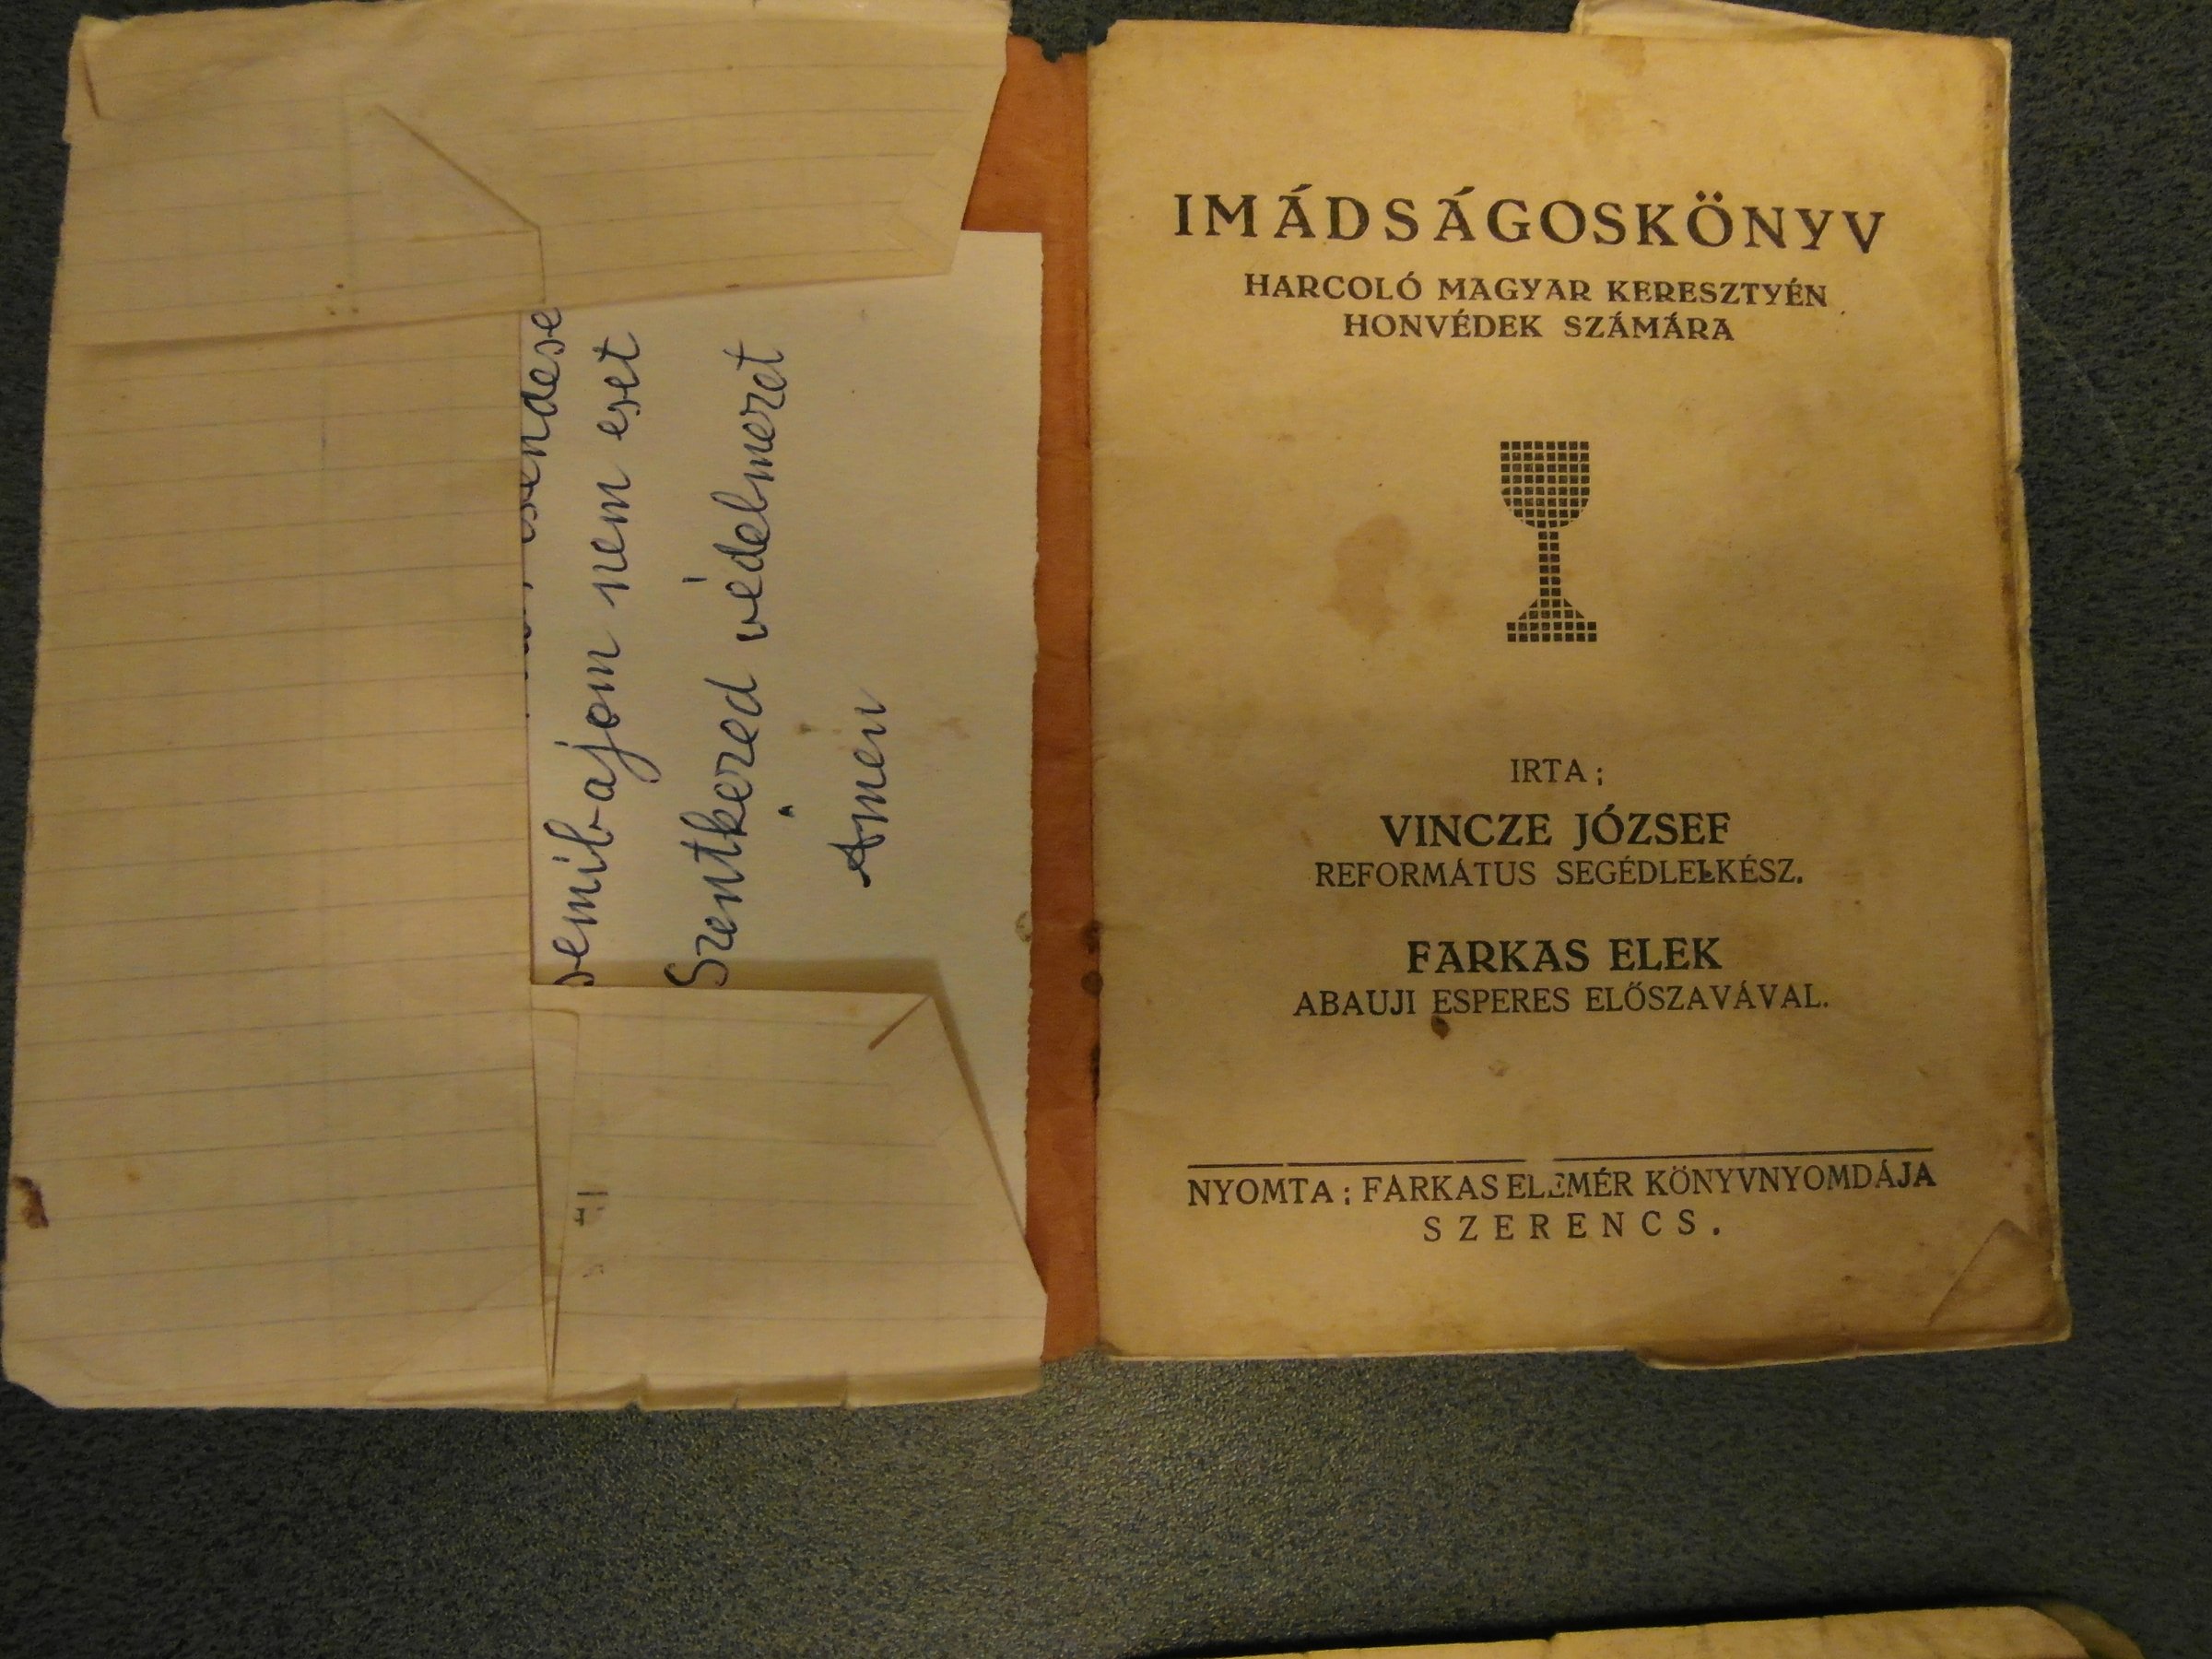 csendese
semibajom nem eset
Szentkezed védelmezet
Ámen
IMÁDSÁGOSKÖNYV
HARCOLÓ MAGYAR KERESZTYÉN
HONVÉDEK SZÁMÁRA
IRTA:
VINCZE JÓZSEF
REFORMÁTUS SEGÉDLELKÉSZ.
FARKAS ELEK
ABAUJI ESPERES ELŐSZAVÁVAL.
NYOMTA: FARKAS ELEMÉR KÖNYVNYOMDÁJA
SZERENCS.